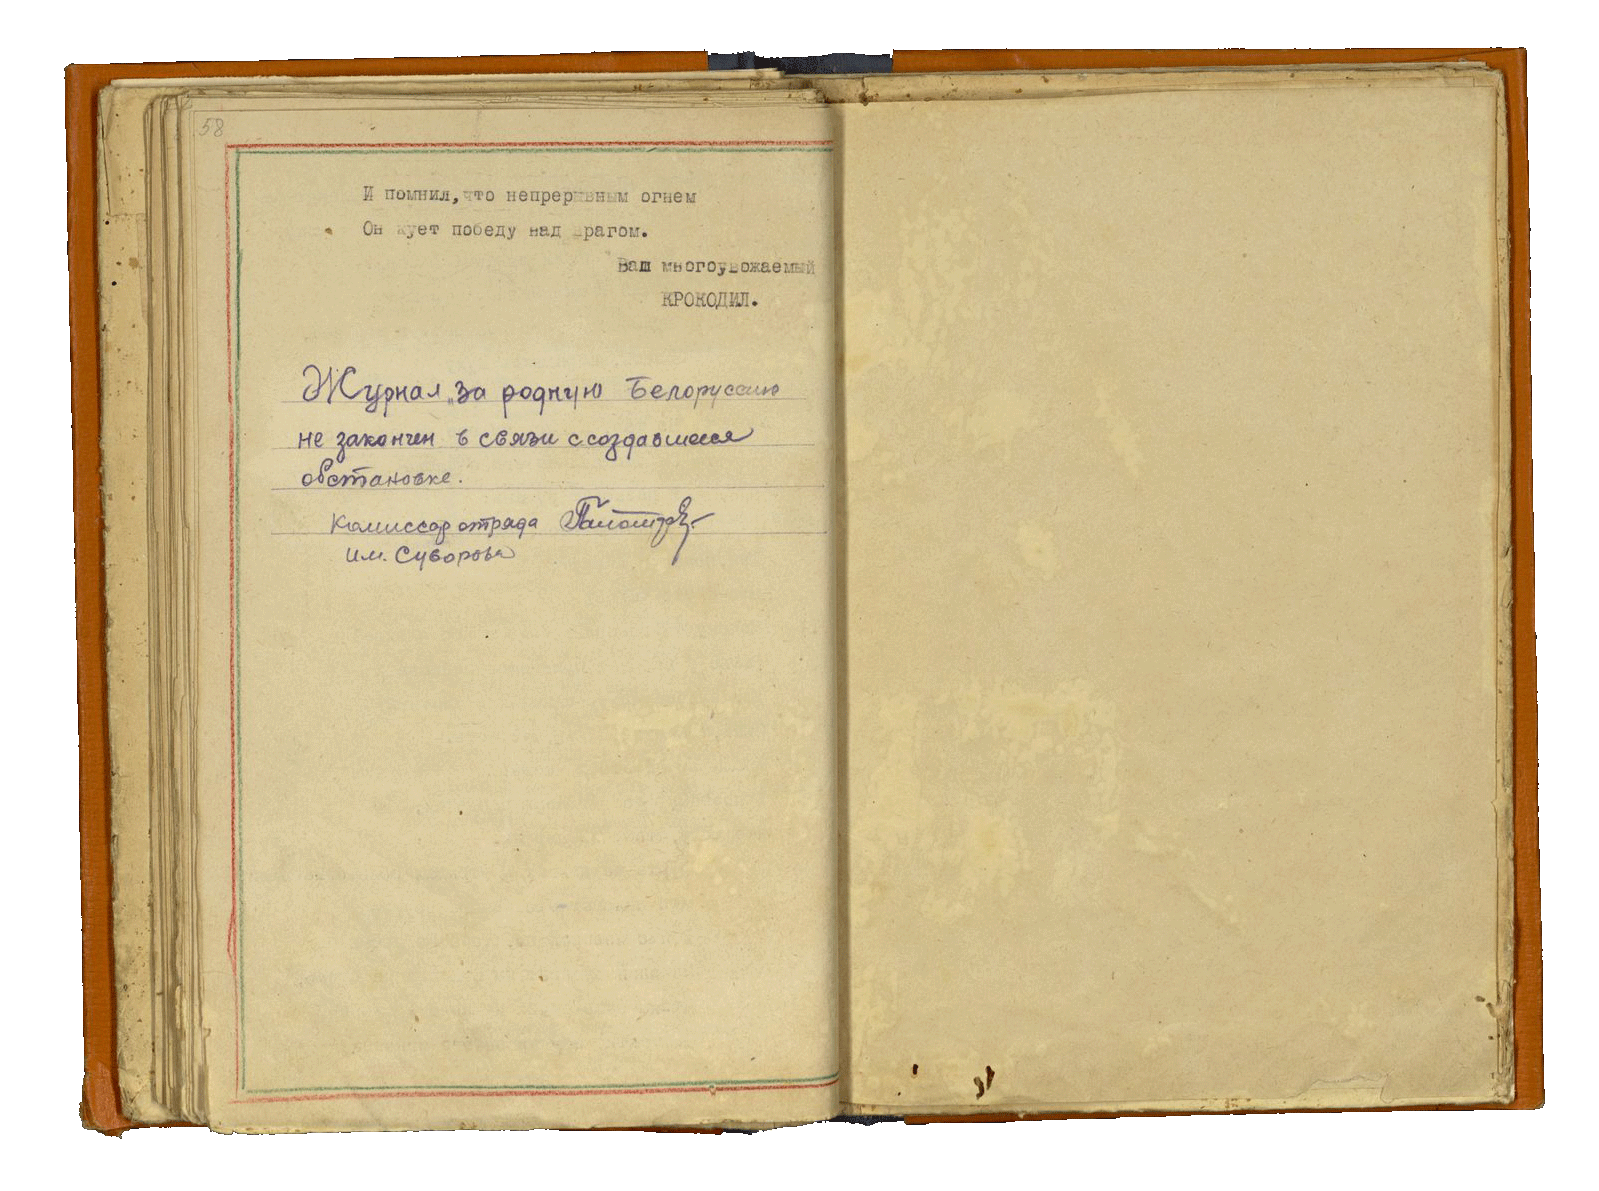 58
И помнил, что непрерывным огнем
Он кует победу над врагом.
Ваш многоувожаемый
КРОКОДИЛ.
Журнал „За родную Белоруссию
не закончен в связи с создавшееся
обстановке.
Комиссар отряда
им. Суворова